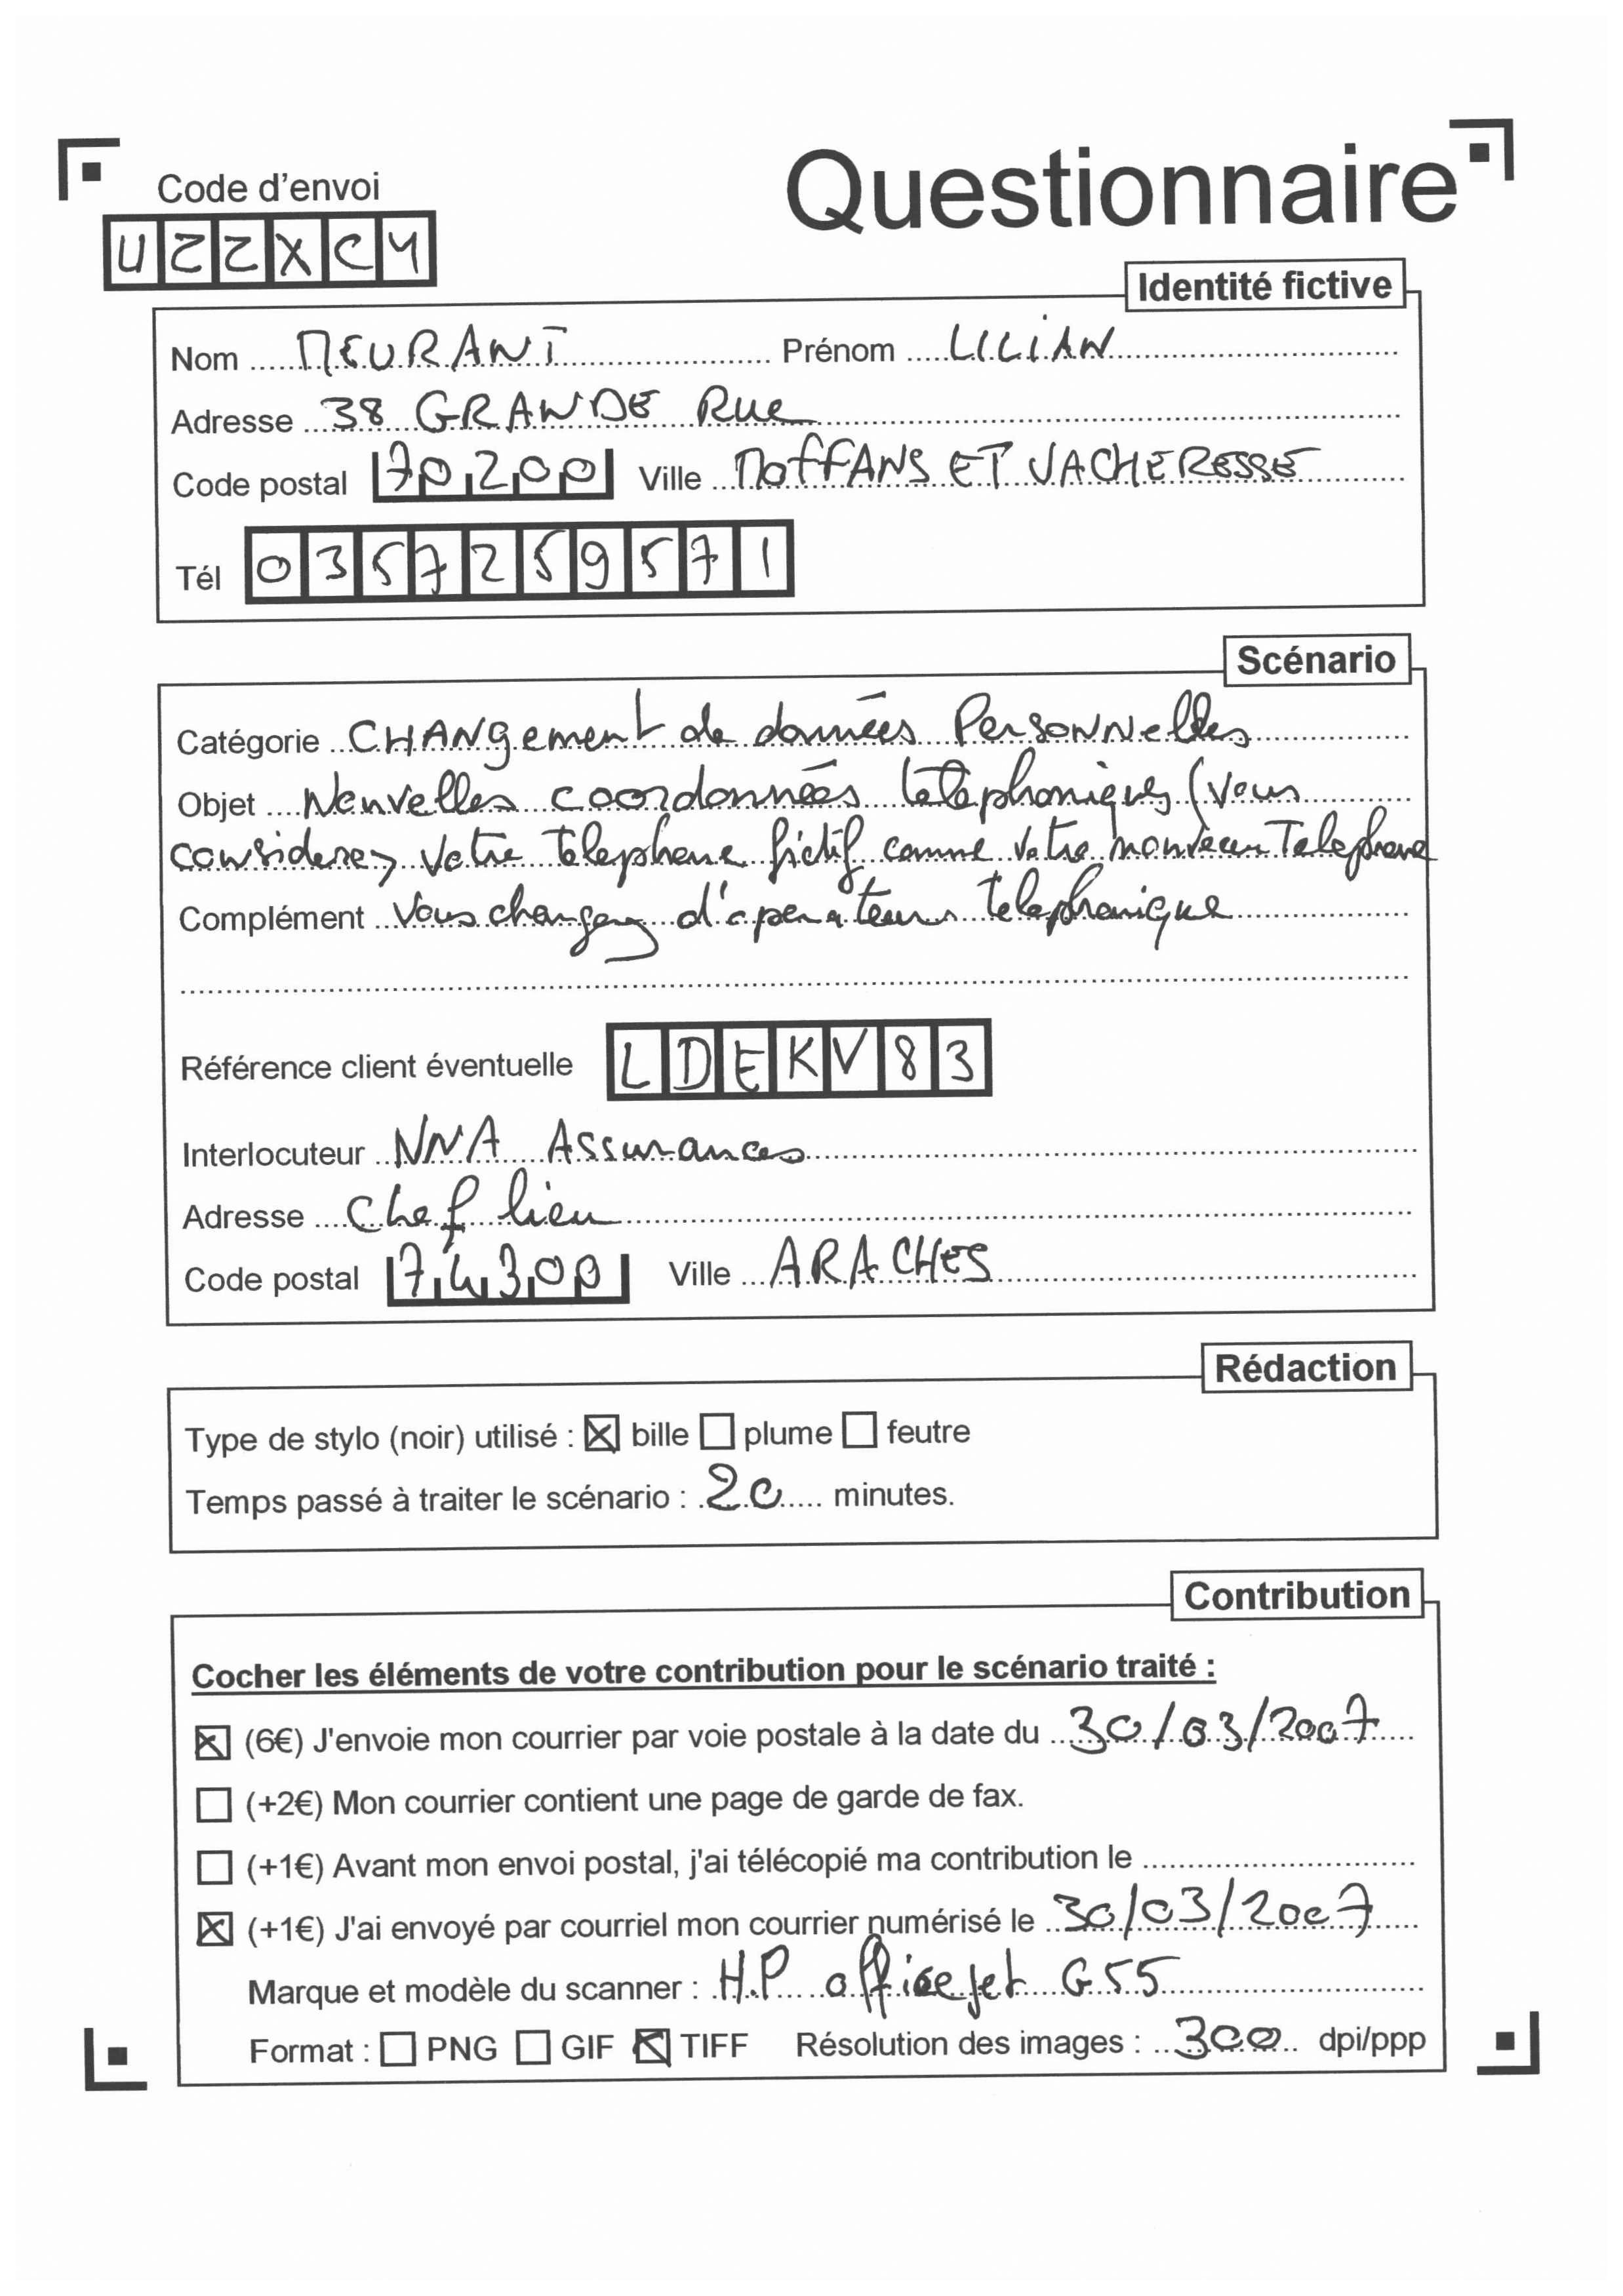 Questionnaire
Code d'envoi
UZZXCY
Identité fictive
Nom MEURANT Prénom LILIAN
Adresse 38 GRANDE Rue
Code postal 70200 Ville MOFFANS ET VACHERESSE
Tél 0357259571
Scénario
Catégorie CHANgement de données PersoNNelles
Objet Nouvelles coordonnées téléphoniques (vous
considerez votre telephone fictif comme votre nouveau Telephone
Complément Vous changez d'operateurs telephonique
Référence client éventuelle LDEKV83
Interlocuteur NNA Assurances
Adresse Chef lieu
Code postal 74300 Ville ARACHES
Rédaction
Type de stylo (noir) utilisé : ☒ bille ☐ plume ☐ feutre
Temps passé à traiter le scénario : 20 minutes.
Contribution
Cocher les éléments de votre contribution pour le scénario traité :
☒ (6€) J'envoie mon courrier par voie postale à la date du 30/03/2007
☐ (+2€) Mon courrier contient une page de garde de fax.
☐ (+1€) Avant mon envoi postal, j'ai télécopié ma contribution le
☒ (+1€) J'ai envoyé par courriel mon courrier numérisé le 30/03/2007
Marque et modèle du scanner : H.P officejet G55
Format : ☐ PNG ☐ GIF ☒ TIFF Résolution des images : 300 dpi/ppp